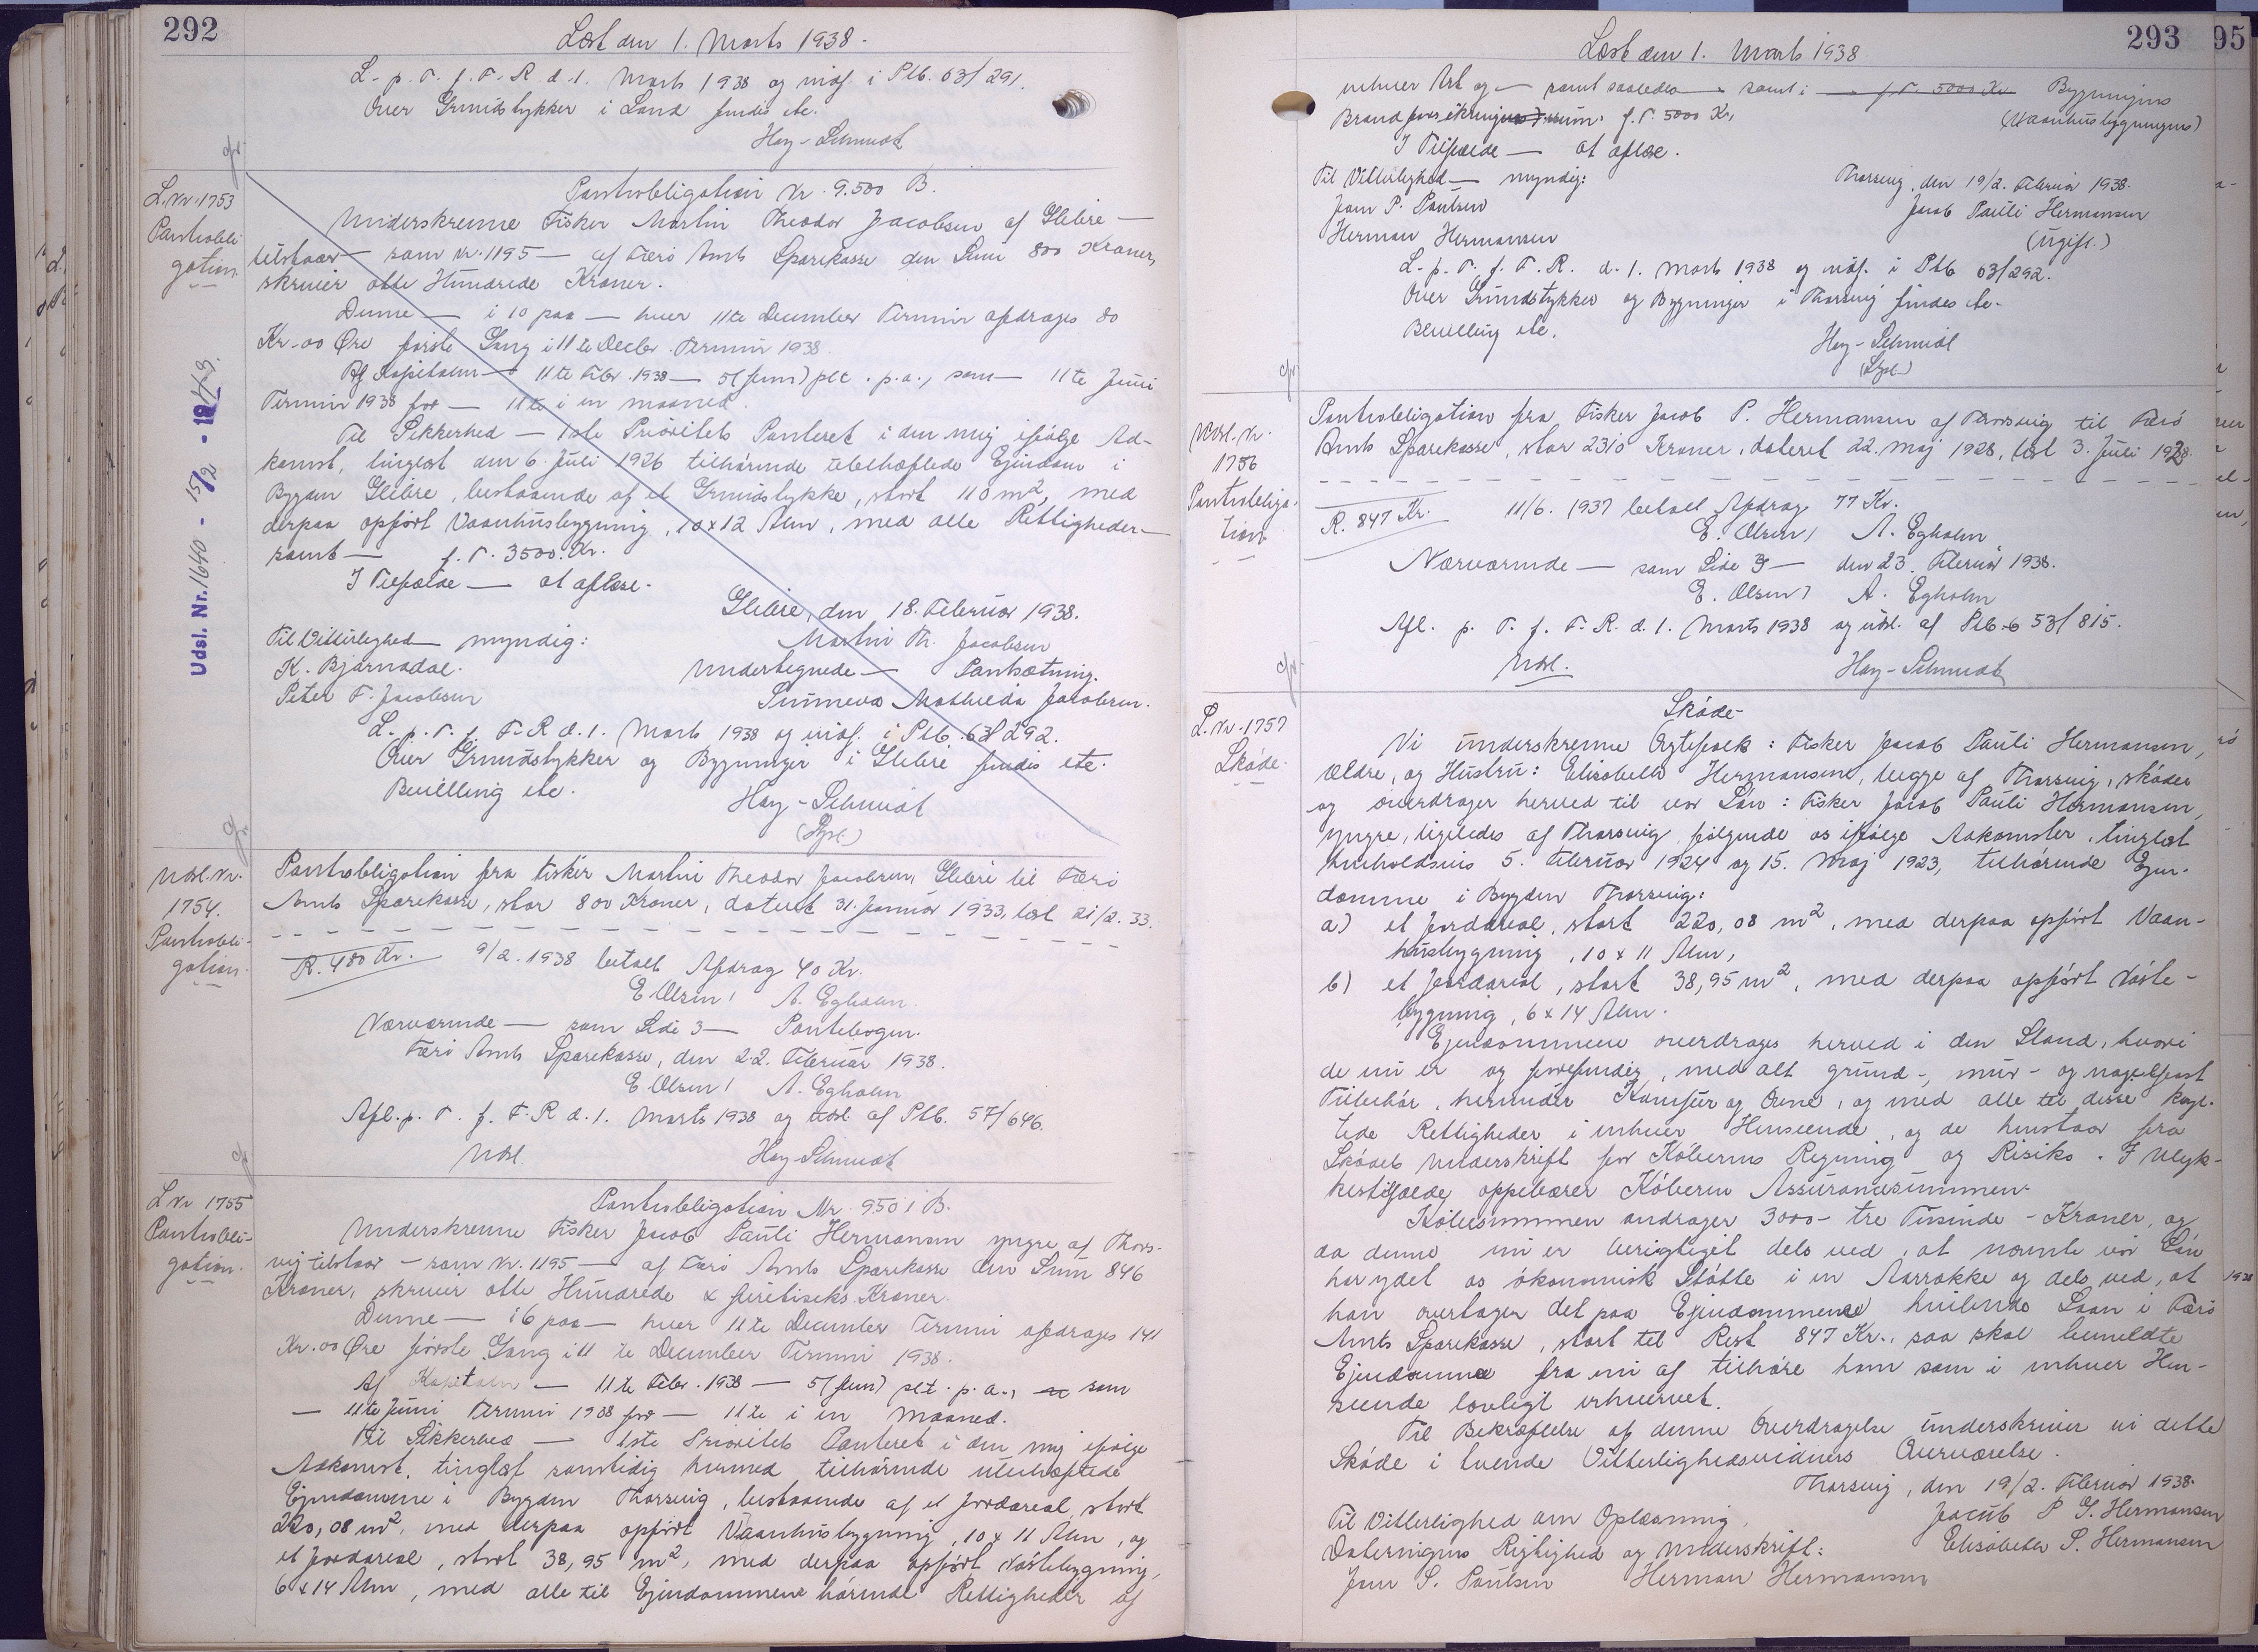 292
Læst den 1. Marts 1938.
L. p. T. f. F. R. d. 1. Marts 1938 og indf. i Ptb. 63/291.
Over Grundstykker i Sand findes etc.
Hay-Schmidt
L. Nr. 1753
Pantobli
gation.
Udsl. Nr. 1640 - 15/2 - 1949.
Pantobligation Nr. 9.500 B.
Underskrevne Fisker Martin Theodor Jacobsen af Glibre —
tilstaar — som Nr. 1195 — af Færø Amts Sparekasse den Sum 800 Kroner,
skriver otte Hundrede Kroner.
Denne — i 10 paa — hver 11te December Termin afdrages 80
Kr. 00 Øre første Gang i 11te Decbr. Termin 1938.
Af Kapitalen — 11te Febr. 1938 — 5 (fem) pCt. p.a., som — 11te Juni
Termin 1938 for — 11te i en maaned.
Til Sikkerhed — 1ste Prioritets Panteret i den mig ifølge Ad-
komst, tinglæst den 6. Juli 1926 tilhørende ubehæftede Ejendom i
Bygden Glibre, bestaaende af et Grundstykke, stort 110 m², med
derpaa opført Vaanhusbygning, 10 x 12 Alen, med alle Rettigheder —
samt — f. T. 3500. Kr.
I Tilfælde — at aflæse.
Glibre, den 18. Februar 1938.
Til Vitterlighed — myndig: Martin Th. Jacobsen
K. Bjarnadal. Undertegnede — Pantsætning.
Peter F. Jacobsen Sunneva Mathilda Jacobsen.
L. p. T. f. F. R d. 1. Marts 1938 og indf. i Ptb. 63/292.
Over Grundstykker og Bygninger i Glibre findes etc.
Bevilling etc.
Hay-Schmidt
(Sysl.)
Udsl. Nr.
1754.
Pantobli-
gation.
Pantobligation fra Fisker Martin Theodor Jacobsen, Glibre til Færø
Amts Sparekasse, stor 800 Kroner, dateret 31. Januar 1933, læst 21/2. 33.
R. 480 Kr. 9/2. 1938 betalt Afdrag 40 Kr.
E. Olsen / A. Egholm.
Nærværende — som Side 3 — Pantebogen.
Færø Amts Sparekasse, den 22. Februar 1938.
E. Olsen / A. Egholm
Afl. p. T. f. F. R d. 1. Marts 1938 og udsl. af Ptb. 57/646.
Udsl. Hay-Schmidt
L. Nr 1755
Pantobli-
gation.
Pantobligation Nr. 9501 B.
Underskrevne Fisker Jacob Pauli Hermansen yngre af Thors-
vig tilstaar — som Nr. 1195 — af Færø Amts Sparekasse den Sum 846
Kroner, skriver otte Hundrede & firetiseks Kroner.
Denne — i 6 paa — hver 11te December Termin afdrages 141
Kr. 00 Øre første Gang i 11te December Termin 1938.
Af Kapitalen — 11te Febr. 1938 — 5 (fem) pCt. p.a., som
— 11te Juni Termin 1938 for — 11te i en Maaned.
Til Sikkerhed — 1ste Prioritets Panteret i den mig ifølge
Adkomst, tinglæst samtidig hermed tilhørende ubehæftede
Ejendomme i Bygden Thorsvig, bestaaende af et Jordareal, stort
220,08 m², med derpaa opført Vaanhusbygning, 10 x 11 Alen, og
et Jordareal, stort 38,95 m², med derpaa opført Nøstebygning,
6 x 14 Alen, med alle til Ejendommene hørende Rettigheder af
293
95
Læst den 1. Marts 1938
enhver Art og — samt saaledes — samt i — f. T. 5000 Kr. Bygningens
(Vaanhusbygningens)
Brandforsikringssum f. T. 5000 Kr.
I Tilfælde — at aflæse.
Til Vitterlighed — myndig: Thorsvig, den 19/2. Februar 1938.
Jens P. Poulsen Jacob Pauli Hermansen
Herman Hermansen (ugift.)
L. p. T. f. F. R. d. 1. Marts 1938 og indf. i Ptb 63/292.
Over Grundstykker og Bygninger i Thorsvig findes etc.
Bevilling etc.
Hay-Schmidt
(Sysl.)
Udsl. Nr.
1756
Pantobliga-
tion.
Pantobligation fra Fisker Jacob P. Hermansen af Thorsvig til Færø
Amts Sparekasse, stor 2310 Kroner, dateret 22. Maj 1928, læst 3. Juli 1928.
R. 847 Kr. 11/6. 1937 betalt Afdrag 77 Kr.
E. Olsen / A. Egholm
Nærværende — som Side 3 — den 23. Februar 1938.
E. Olsen / A. Egholm
Afl. p. T. f. F. R. d. 1. Marts 1938 og udsl. af Ptb. 53/815.
Udsl. Hay-Schmidt
L. Nr. 1757
Skøde.
Skøde
Vi underskrevne Ægtefolk: Fisker Jacob Pauli Hermansen,
ældre, og Hustru: Elisabeth Hermansen, begge af Thorsvig, skøder
og overdrager herved til vor Søn: Fisker Jacob Pauli Hermansen,
yngre, ligeledes af Thorsvig følgende os ifølge Adkomster, tinglæst
henholdsvis 5. Februar 1924 og 15. Maj 1923, tilhørende Ejen-
domme i Bygden Thorsvig:
a) et Jordareal, stort 220,08 m², med derpaa opført Vaan-
husbygning, 10 x 11 Alen,
b) et Jordareal, stort 38,95 m², med derpaa opført Nøste-
bygning, 6 x 14 Alen.
Ejendommene overdrages herved i den Stand, hvori
de nu er og forefindes, med alt grund-, mur- og nagelfast
Tilbehør, herunder Komfur og Ovne, og med alle til disse knyt-
tede Rettigheder i enhver Henseende, og de henstaar fra
Skødets Underskrift for Køberens Regning og Risiko. I Ulyk-
kestilfælde oppebærer Køberen Assurancesummen.
Købesummen andrager 3000 - tre Tusinde - Kroner, og
da denne nu er berigtiget dels ved, at nævnte vor Søn
har ydet os økonomisk Støtte i en Aarrække og dels ved, at
han overtager det paa Ejendommene hvilende Laan i Færø
Amts Sparekasse, stort til Rest 847 Kr., saa skal bemeldte
Ejendomme fra nu af tilhøre ham som i enhver Hen-
seende lovligt erhvervet.
Til Bekræftelse af denne Overdragelse underskriver vi dette
Skøde i tvende Vitterlighedsvidners Overværelse.
Thorsvig, den 19/2. Februar 1938.
Til Vitterlighed om Oplæsning, Jacob P. S. Hermansen
Dateringens Rigtighed og Underskrift: Elisabeth S. Hermansen
Jens S. Poulsen Herman Hermansen